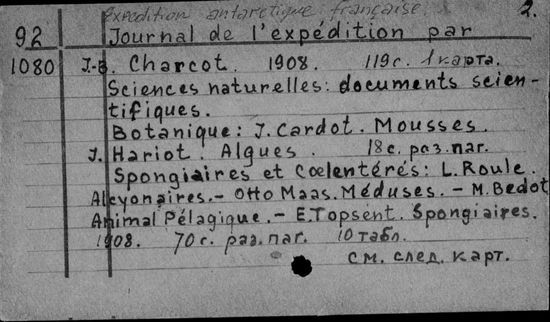 Expedition antarctique française 2.
92 Journal de l'expédition par
1080 J-B. Charcot. 1908. 119с. 1 карта.
Sciences naturelles: documents scien-
tifiques.
Botanique: J. Cardot. Mousses.
J. Hariot. Algues. 18с. раз. паг.
Spongiaires et Cœlentérés: L. Roule.
Alcyonaires. - Otto Maas. Méduses. - M. Bedot
Animal Pélagique. - E. Topsent. Spongiaires.
1908. 70с. раз. паг. 10 табл.
см. след. карт.